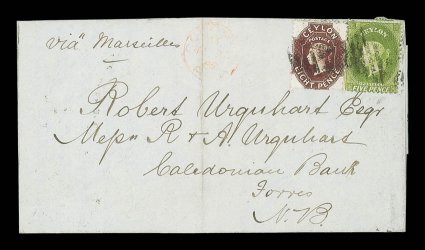 via Marseilles
CEYLON
POSTAGE
EIGHT PENCE
CEYLON
FIVE PENCE
Robert Urquhart Esqr
Messrs R & A. Urquhart
Caledonian Bank
Forres
N.B.